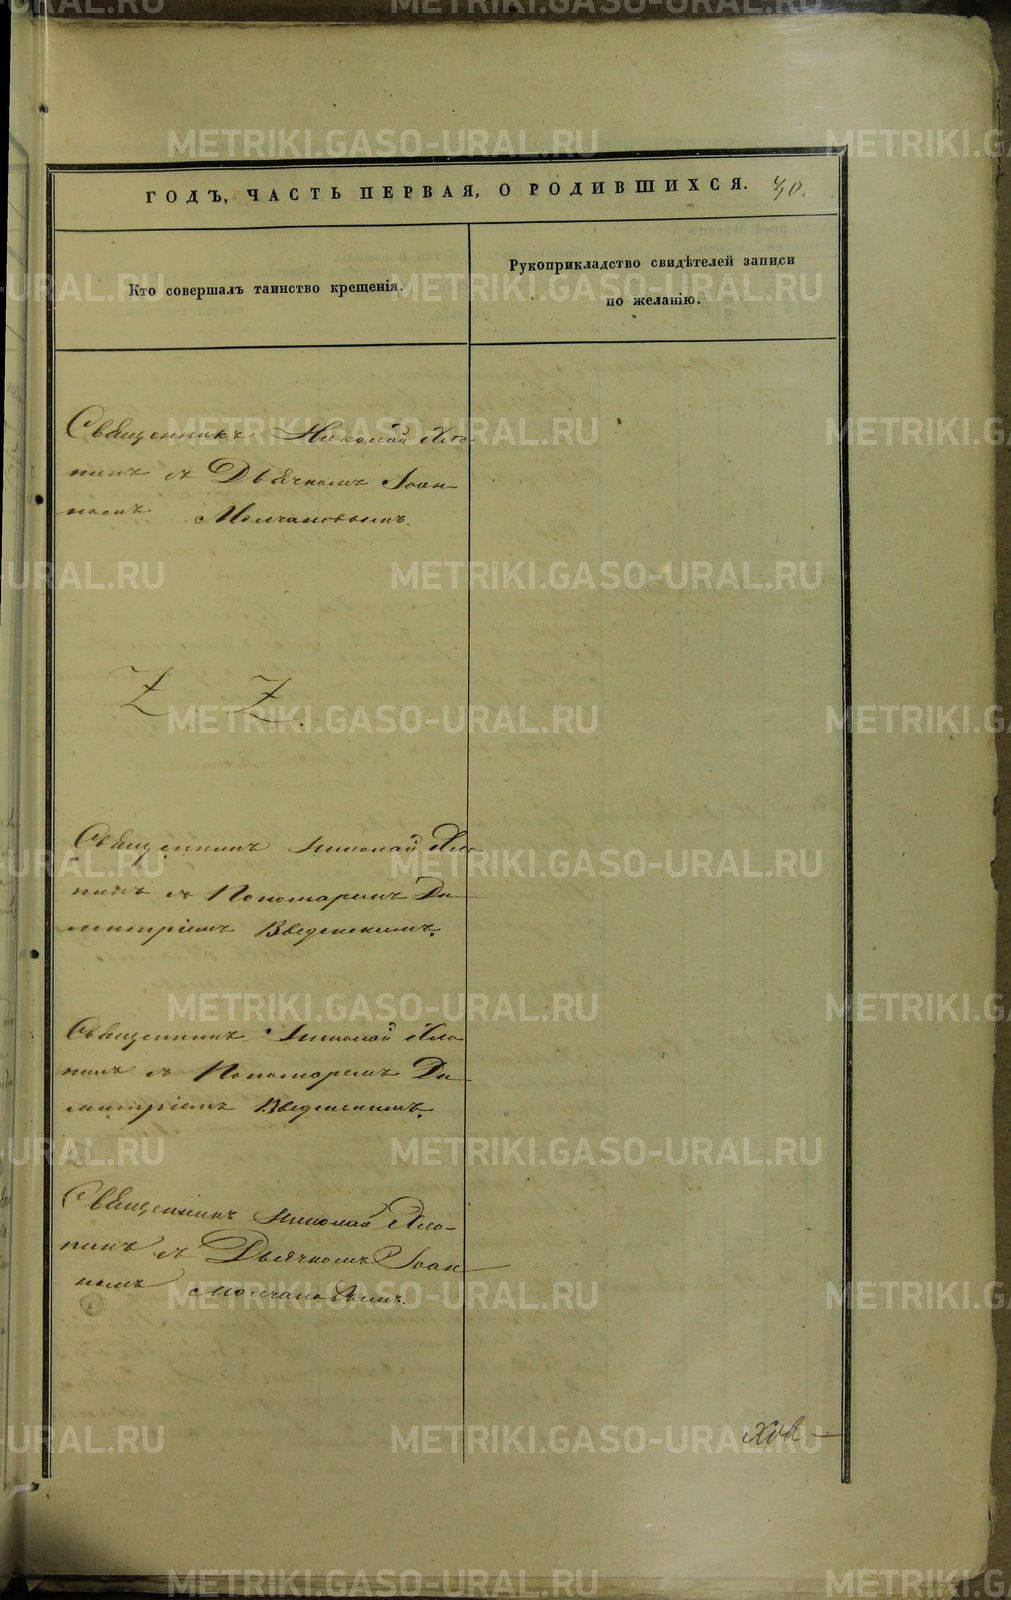 ГОДЪ, ЧАСТЬ ПЕРВАЯ, О РОДИВШИХСЯ. 40.
Кто совершалъ таинство крещенія.
Рукоприкладство свидѣтелей записи
по желанію.
Священникъ Николай Хло-
пинъ съ Дьячкомъ Іоан-
номъ Молчановымъ.
Z Z.
Священникъ Николай Хло-
пинъ съ Пономаремъ Ди-
митріемъ Введенскимъ.
Священникъ Николай Хло-
пинъ съ Пономаремъ Ди-
митріемъ Введенскимъ.
Священникъ Николай Хло-
пинъ съ Дьячкомъ Іоан-
номъ Молчановымъ.
METRIKI.GASO-URAL.RU